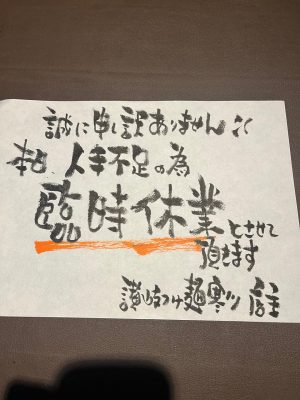 誠に申し訳ありませんが
本日、人手不足の為
臨時休業とさせて
頂きます
讃岐つけ麺寒川 店主